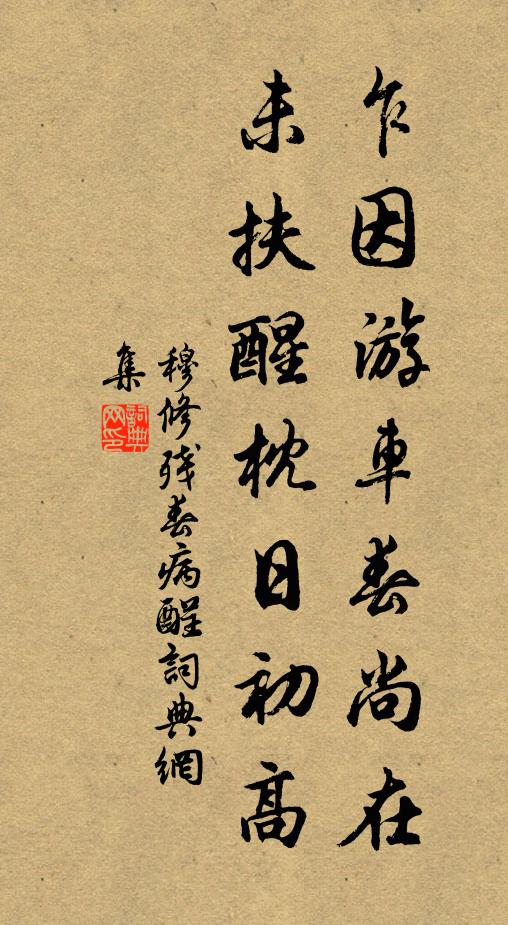 乍因游車春尚在
未扶醒枕日初高
穆修殘春病醒詞典網
集
詞典网印